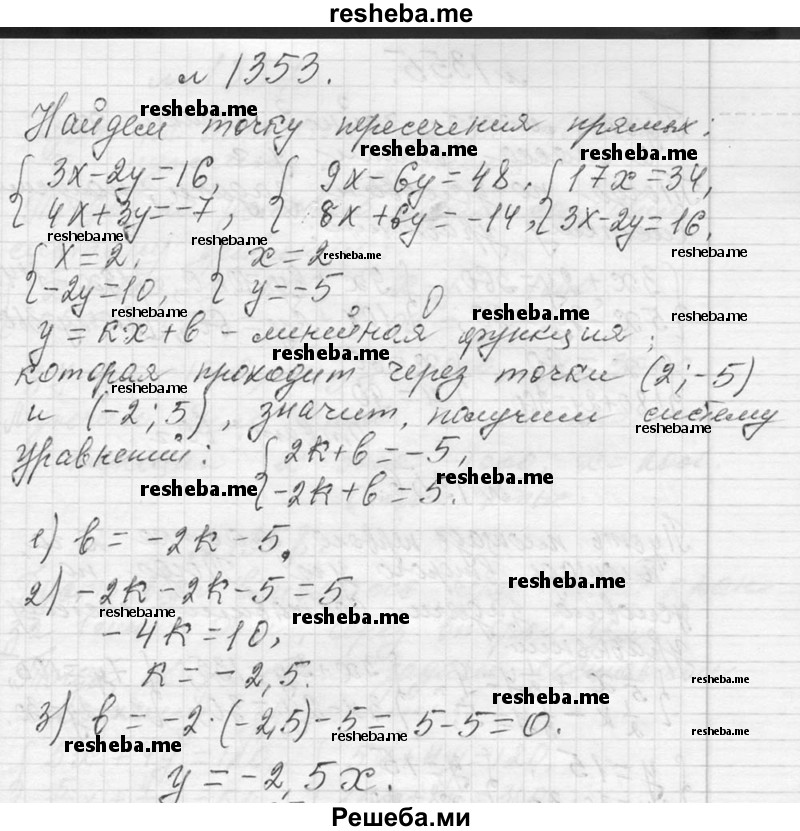 resheba.me
№ 1353.
resheba.me
Найдем точку пересечения прямых:
resheba.me resheba.me
{ 3x-2y=16, { 9x-6y=48, { 17x=34,
4x+3y=-7, 8x+6y=-14, 3x-2y=16,
resheba.me resheba.me resheba.me
{ x=2, { x=2 resheba.me
-2y=10, y=-5
resheba.me resheba.me resheba.me
y=kx+b - линейная функция,
resheba.me
которая проходит через точки (2;-5)
resheba.me
и (-2;5), значит, получим систему
resheba.me
уравнений: { 2k+b=-5,
-2k+b=5.
resheba.me resheba.me
1) b=-2k-5,
resheba.me
2) -2k-2k-5=5
resheba.me resheba.me
-4k=10,
k=-2,5.
resheba.me
resheba.me
3) b=-2·(-2,5)-5=5-5=0.
resheba.me resheba.me resheba.me
y=-2,5x.
Решеба.ми